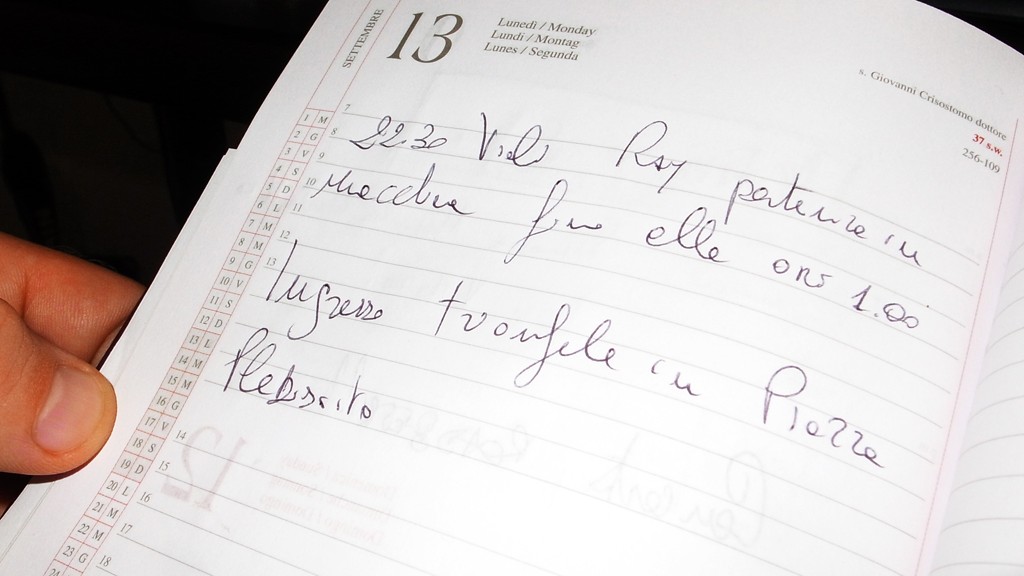 SETTEMBRE
13
Lunedì / Monday
Lundi / Montag
Lunes / Segunda
s. Giovanni Crisostomo dottore
37 s.w.
256-109
22.30 Video Ray partenza in
macchina fino alle ore 1.00
Ingresso trionfale in Piazza
Plebiscito
1 M
2 G
3 V
4 S
5 D
6 L
7 M
8 M
9 G
10 V
11 S
12 D
13 L
14 M
15 M
16 G
17 V
18 S
19 D
20 L
21 M
22 M
23 G
24
7
8
9
10
11
12
13
14
15
16
17
18